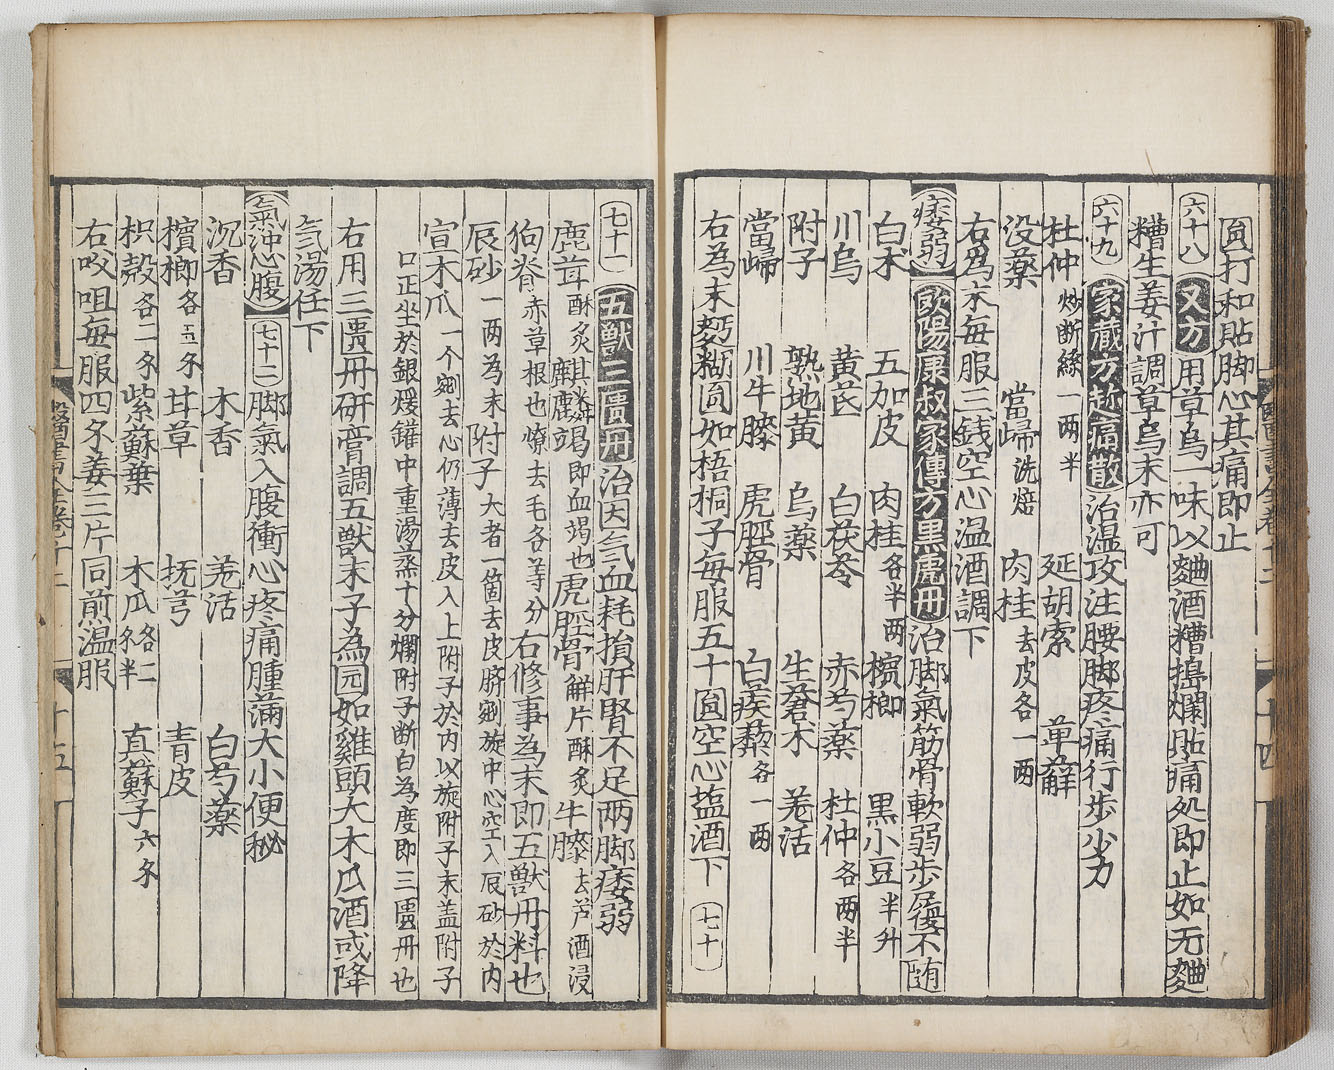 圓打和貼脚心其痛即止
六十八 又方 用草烏一味以麯酒糟搗爛貼痛処即止如无麯
糟生姜汁調草烏末亦可
六十九 家藏方趂痛散 治湿攻注腰脚疼痛行步少力
杜仲 炒断絲一两半 延胡索 萆薢
没藥 當歸 洗焙 肉桂 去皮各一两
右為末每服三銭空心温酒調下
痿弱 歐陽康叔家傳方黒虎丹 治脚氣筋骨軟弱步履不随
白术 五加皮 肉桂 各半两 檳榔 黒小豆 半升
川烏 黄芪 白茯苓 赤芍藥 杜仲 各两半
附子 熟地黄 烏藥 生蒼木 羌活
當歸 川牛膝 虎脛骨 白蒺藜 各一两
右為末麪糊圓如梧桐子每服五十圓空心塩酒下 七十
七十一 五獸三匱丹 治因气血耗損肝腎不足两脚痿弱
鹿茸 酥炙 麒麟竭 即血竭也 虎脛骨 觧片酥炙 牛膝 去芦酒浸
狗脊 赤草根也燎去毛各等分 右修事為末即五獸丹料也
辰砂 一两為末 附子 大者一箇去皮臍剜旋中心空入辰砂於内
宣木瓜 一个剜去心仍薄去皮入上附子於内以旋附子末盖附子
口正坐於銀煖鑵中重湯蒸十分爛附子断白為度即三匱丹也
右用三匱丹研膏調五獸末子為园如雞頭大木瓜酒或降
气湯任下
氣冲心腹 七十二 脚氣入腹衝心疼痛腫滿大小便秘
沉香 木香 羌活 白芍藥
檳榔 各五分 甘草 抚芎 青皮
枳殼 各二分 紫蘇葉 木瓜 各二分半 真蘇子 六分
右㕮咀每服四分姜三片同煎温服
十五